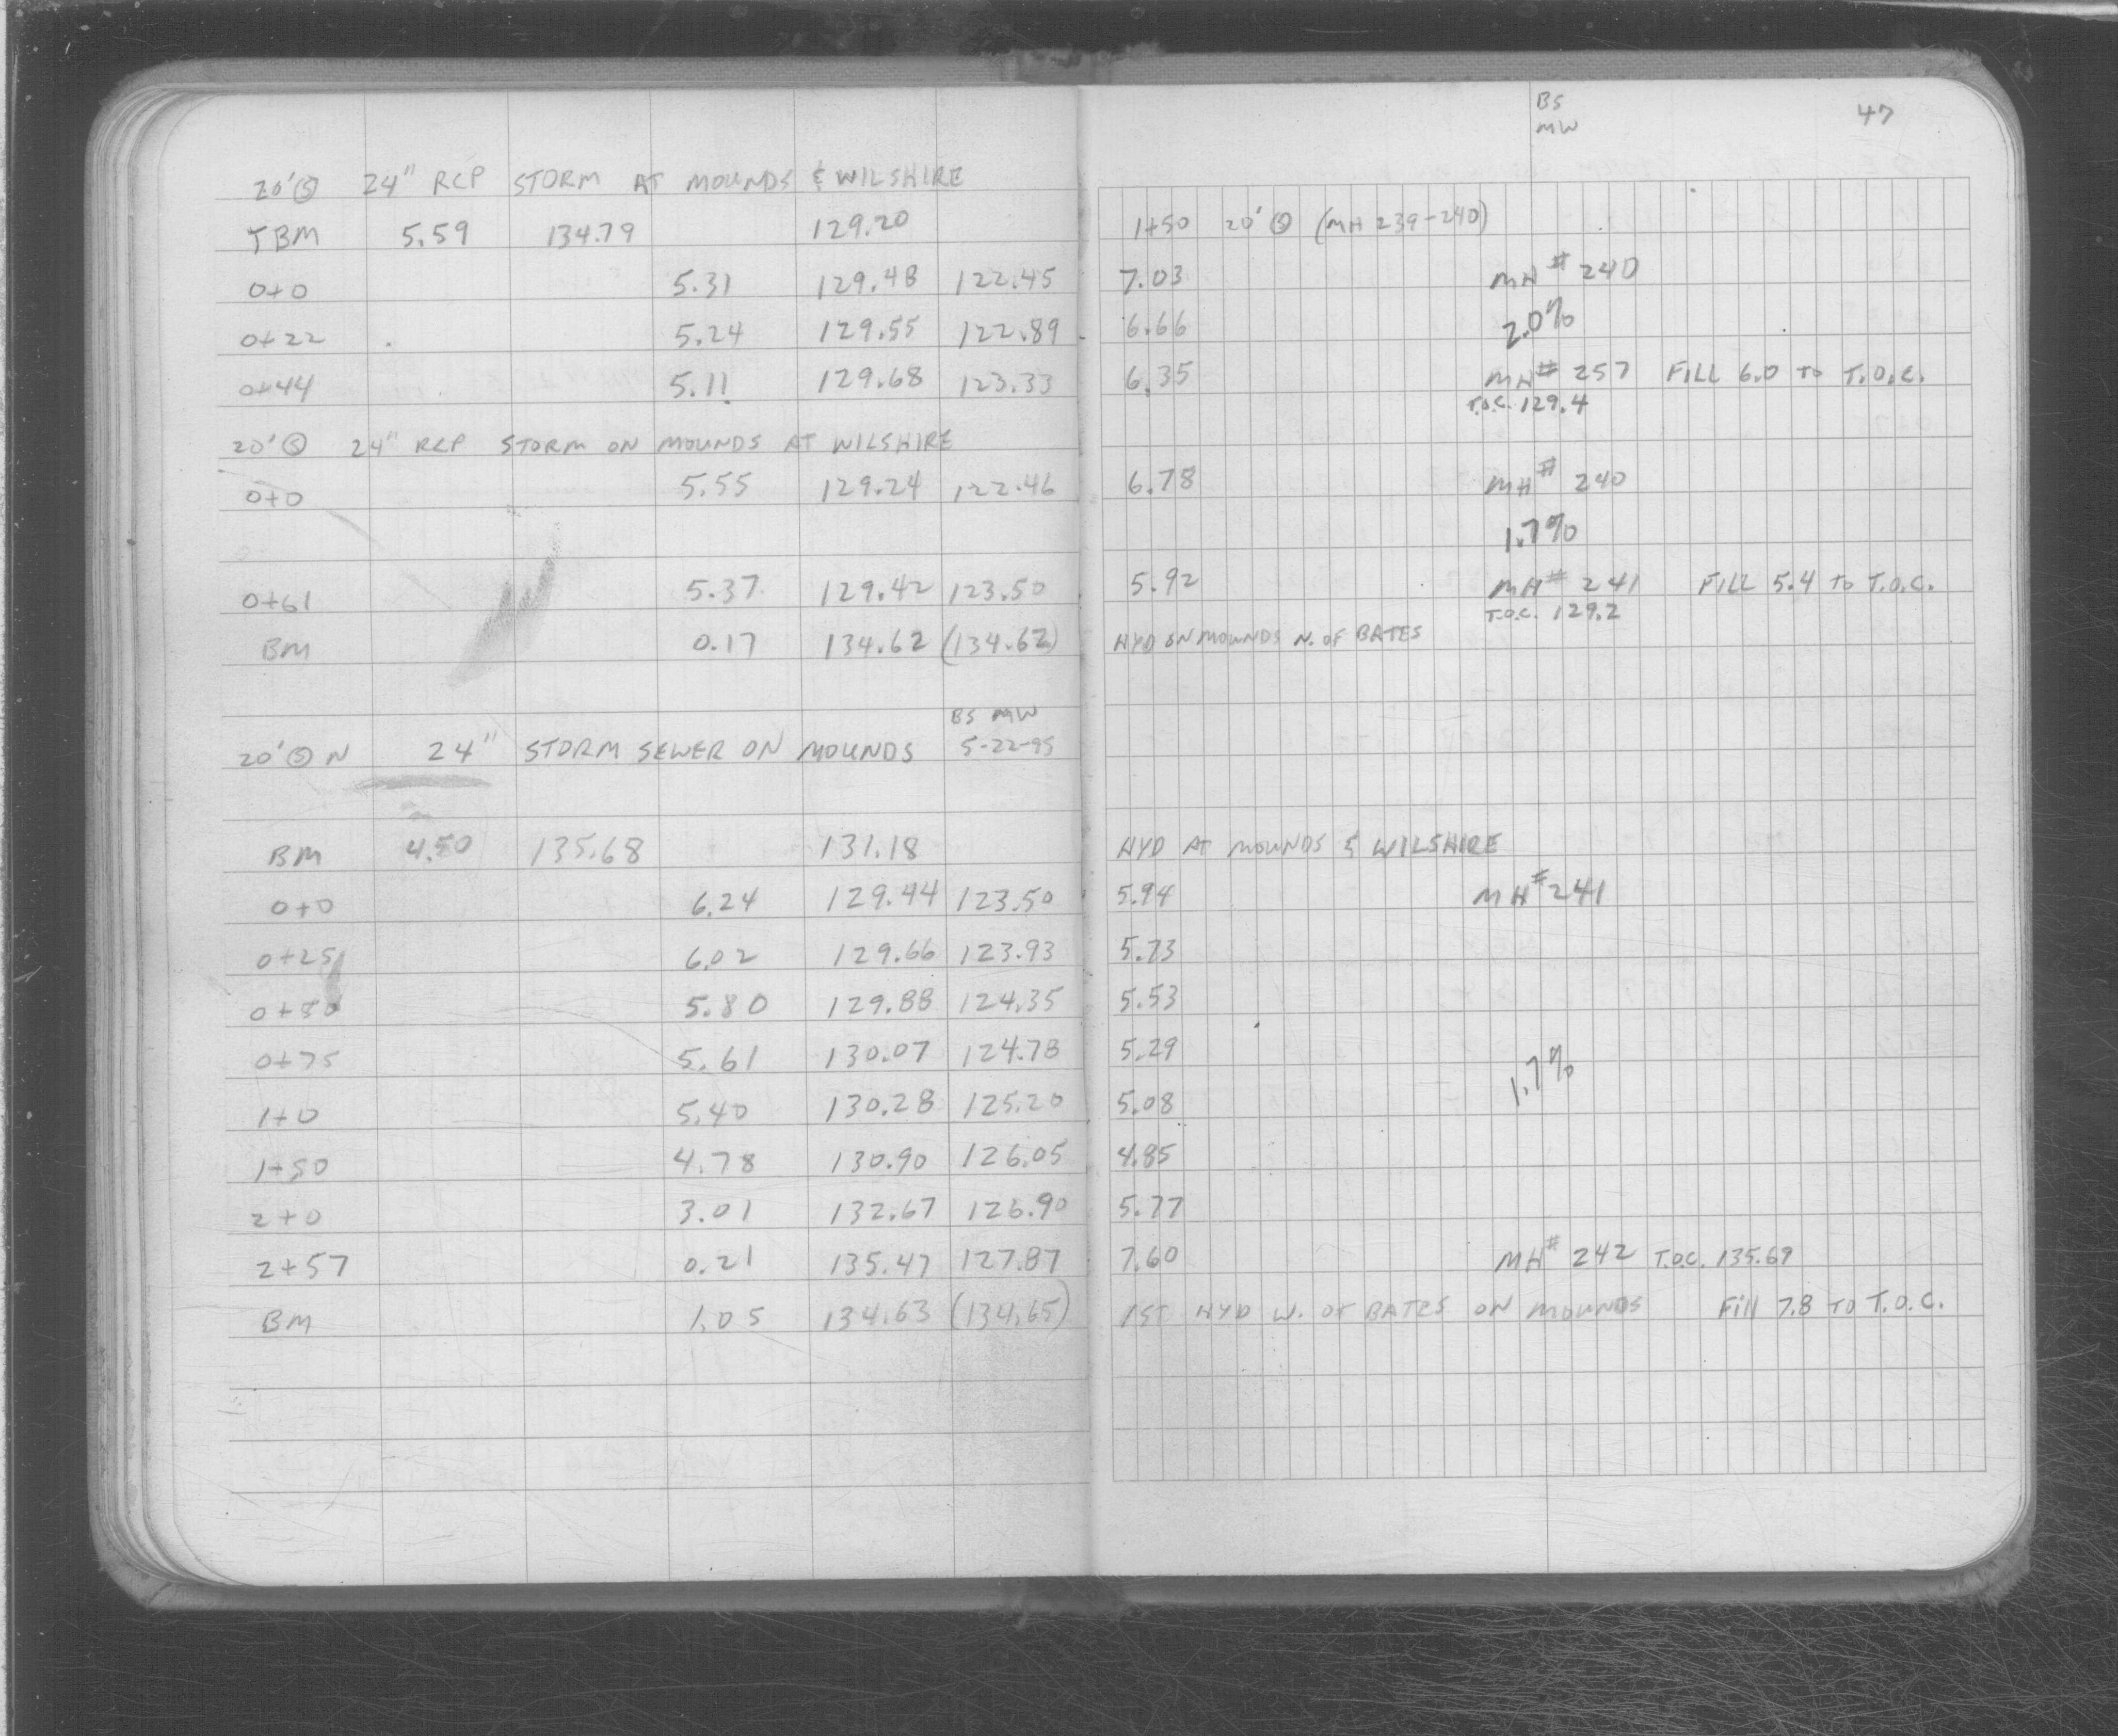 BS
MW
47
20' Ⓢ 24" RCP STORM AT MOUNDS & WILSHIRE
TBM 5.59 134.79 129.20 1+50 20' Ⓢ (MH 239-240)
0+0 5.31 129.48 122.45 7.03 MH # 240
0+22 5.24 129.55 122.89 6.66 2.0%
0+44 5.11 129.68 123.33 6.35 MH # 257 FILL 6.0 to T.O.C.
T.O.C. 129.4
20' Ⓢ 24" RCP STORM ON MOUNDS AT WILSHIRE
0+0 5.55 129.24 122.46 6.78 MH # 240
1.7%
0+61 5.37 129.42 123.50 5.92 MH # 241 FILL 5.4 to T.O.C.
T.O.C. 129.2
BM 0.17 134.62 (134.62) HYD ON MOUNDS N. OF BATES
BS MW
20' Ⓢ N 24" STORM SEWER ON MOUNDS 5-22-95
BM 4.50 135.68 131.18 HYD AT MOUNDS & WILSHIRE
0+0 6.24 129.44 123.50 5.94 MH # 241
0+25 6.02 129.66 123.93 5.73
0+50 5.80 129.88 124.35 5.53
0+75 5.61 130.07 124.78 5.29
1.7%
1+0 5.40 130.28 125.20 5.08
1+50 4.78 130.90 126.05 4.85
2+0 3.01 132.67 126.90 5.77
2+57 0.21 135.47 127.87 7.60 MH # 242 T.O.C. 135.69
BM 1.05 134.63 (134.65) 1ST HYD W. OF BATES ON MOUNDS Fill 7.8 TO T.O.C.